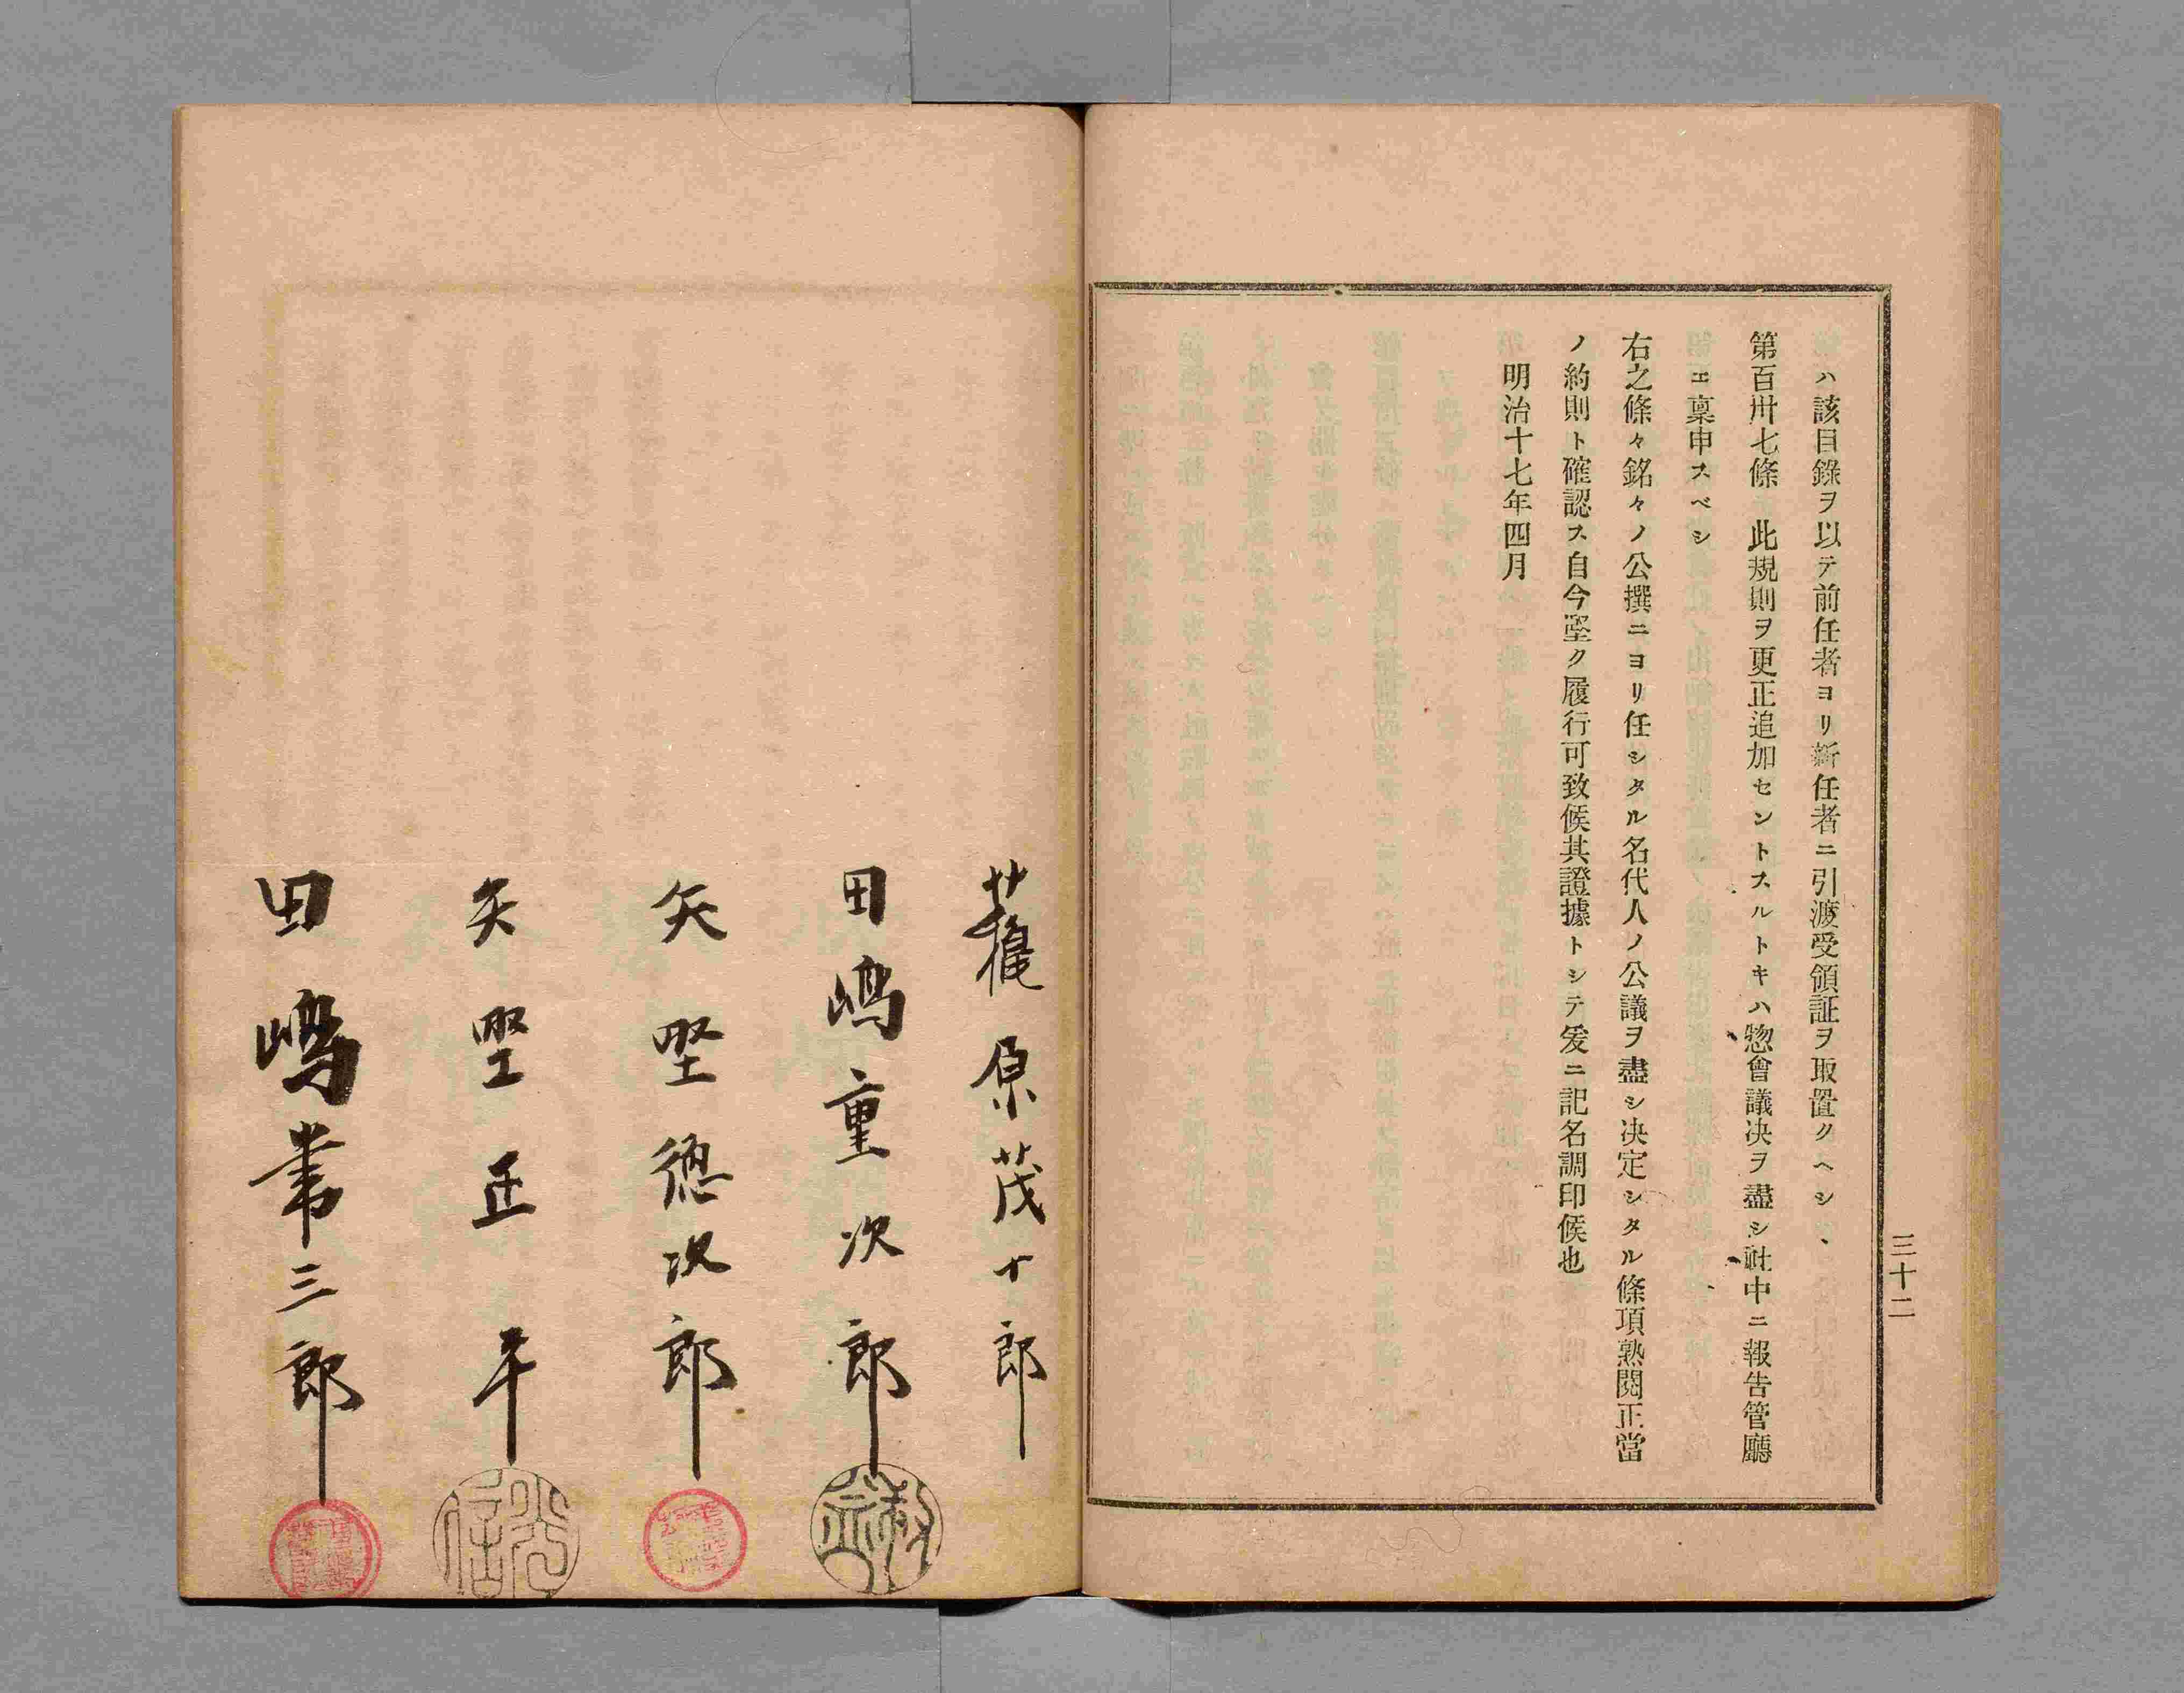 ハ該目錄ヲ以テ前任者ヨリ新任者ニ引渡受領証ヲ取置クヘシ、
第百卅七條　此規則ヲ更正追加セントスルトキハ惣會議决ヲ盡シ社中ニ報告管廳
エ稟申スベシ
右之條々銘々ノ公撰ニヨリ任シタル名代人ノ公議ヲ盡シ决定シタル條項熟閱正當
ノ約則ト確認ス自今堅ク履行可致候其證據トシテ爰ニ記名調印候也
明治十七年四月
三十二
原茂十郎
田嶋重次郎
矢堅德次郎
矢堅正平
田嶋常三郎